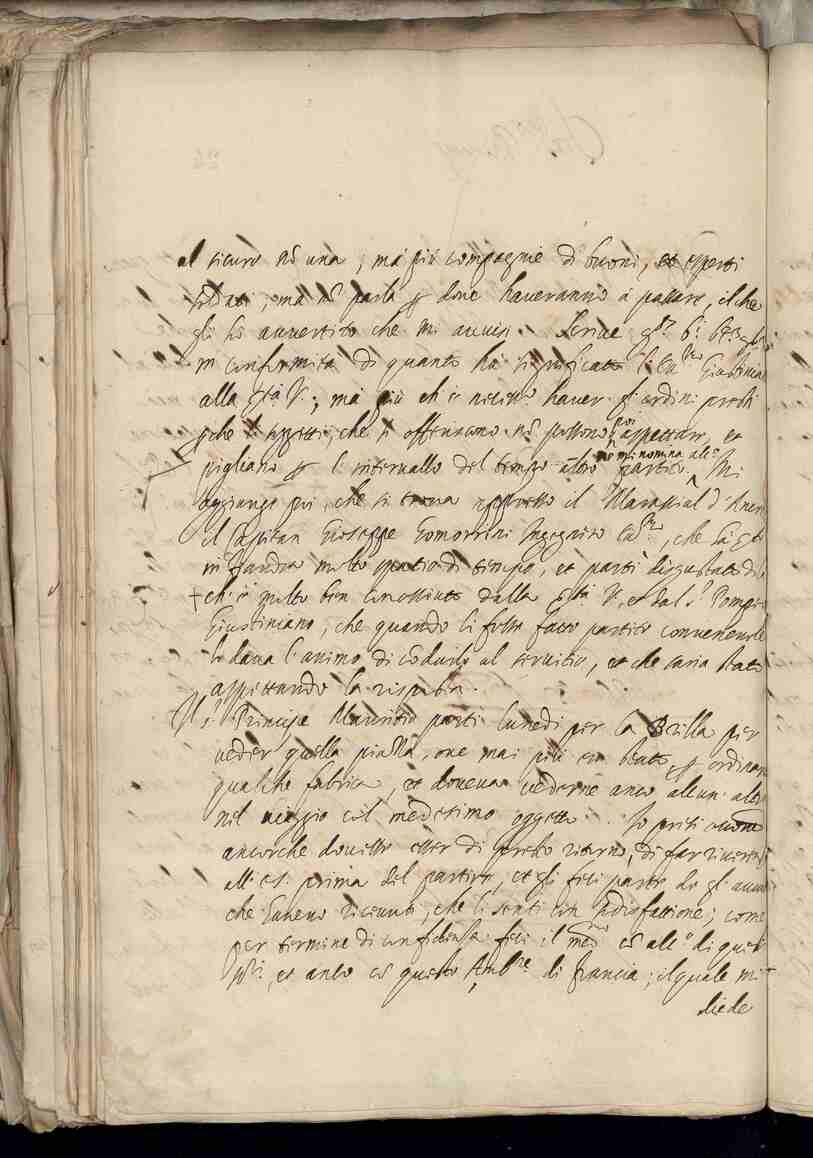 al sicuro nõ una, ma più compagnie di buoni, et esperti
soldati; ma nõ parla dove haveranno à passare, il che
gli hò avvertito che mi avvisi. Scrive
in conformità di quanto hà significato l' Giustinian
alla S.tà V.; mà più ch'è necess.o haver gl'ordini presti
perche i soggetti, che si offeriscono nõ possono poi aspettar, et
pigliano l'intervallo del tempo altro partito. mi nomina alc.o Mi
aggiunge poi, che si trova appresso il Marascial d'
il Capitan Gioseppe Gomorrini Ingegniero, che
in Fiandra molto spatio di tempo, et partì disgustato di
+ ch'è molto ben conosciuto dalla S.tà V. et dal S.r Pompeo
Giustiniano, che quando li fosse fatto partito conveniente
lo dava l'animo di cõdurlo al servitio, et che saria stato
aspettando la risposta.
Il S.r Principe Mauritio partì lunedì per la Brilla per
veder quella piazza, ove mai più era stato, et ordinare
qualche fabrica, et doveva vederne anco alcun' altra
nel viaggio col medesimo oggetto. Io presi
ancorche dovesse esser di presto ritorno, di far riverenza
all' Ec. prima del partire, et gli feci parte de gl'avvisi
che havevo ricevuti, che li sentì con sodisfattione; come
per termine di confidenza feci il med.mo cõ alc.o di questi
SS.ri, et anco cõ questo Amb.re di Francia; il quale mi
diede